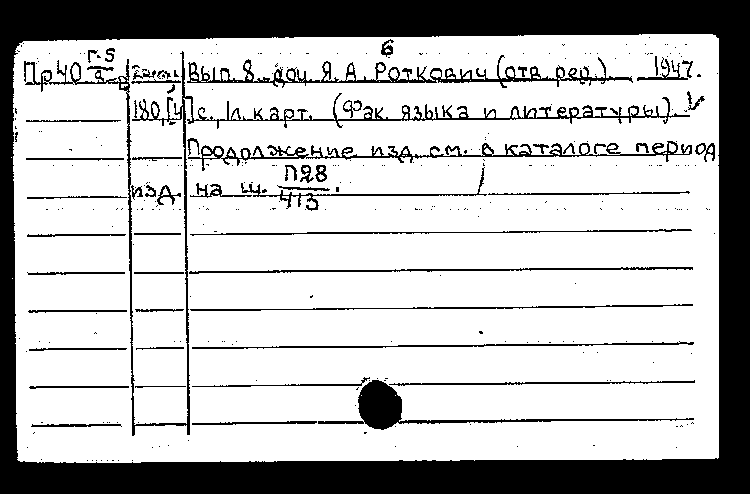 6
Пр40 г-5/2 Вып. 8. доц. Я. А. Роткович (отв. ред.). 1947.
180,[4]с., 1л. карт. (Фак. языка и литературы).
Продолжение изд. см. в каталоге период.
изд. на ш. П28/413.